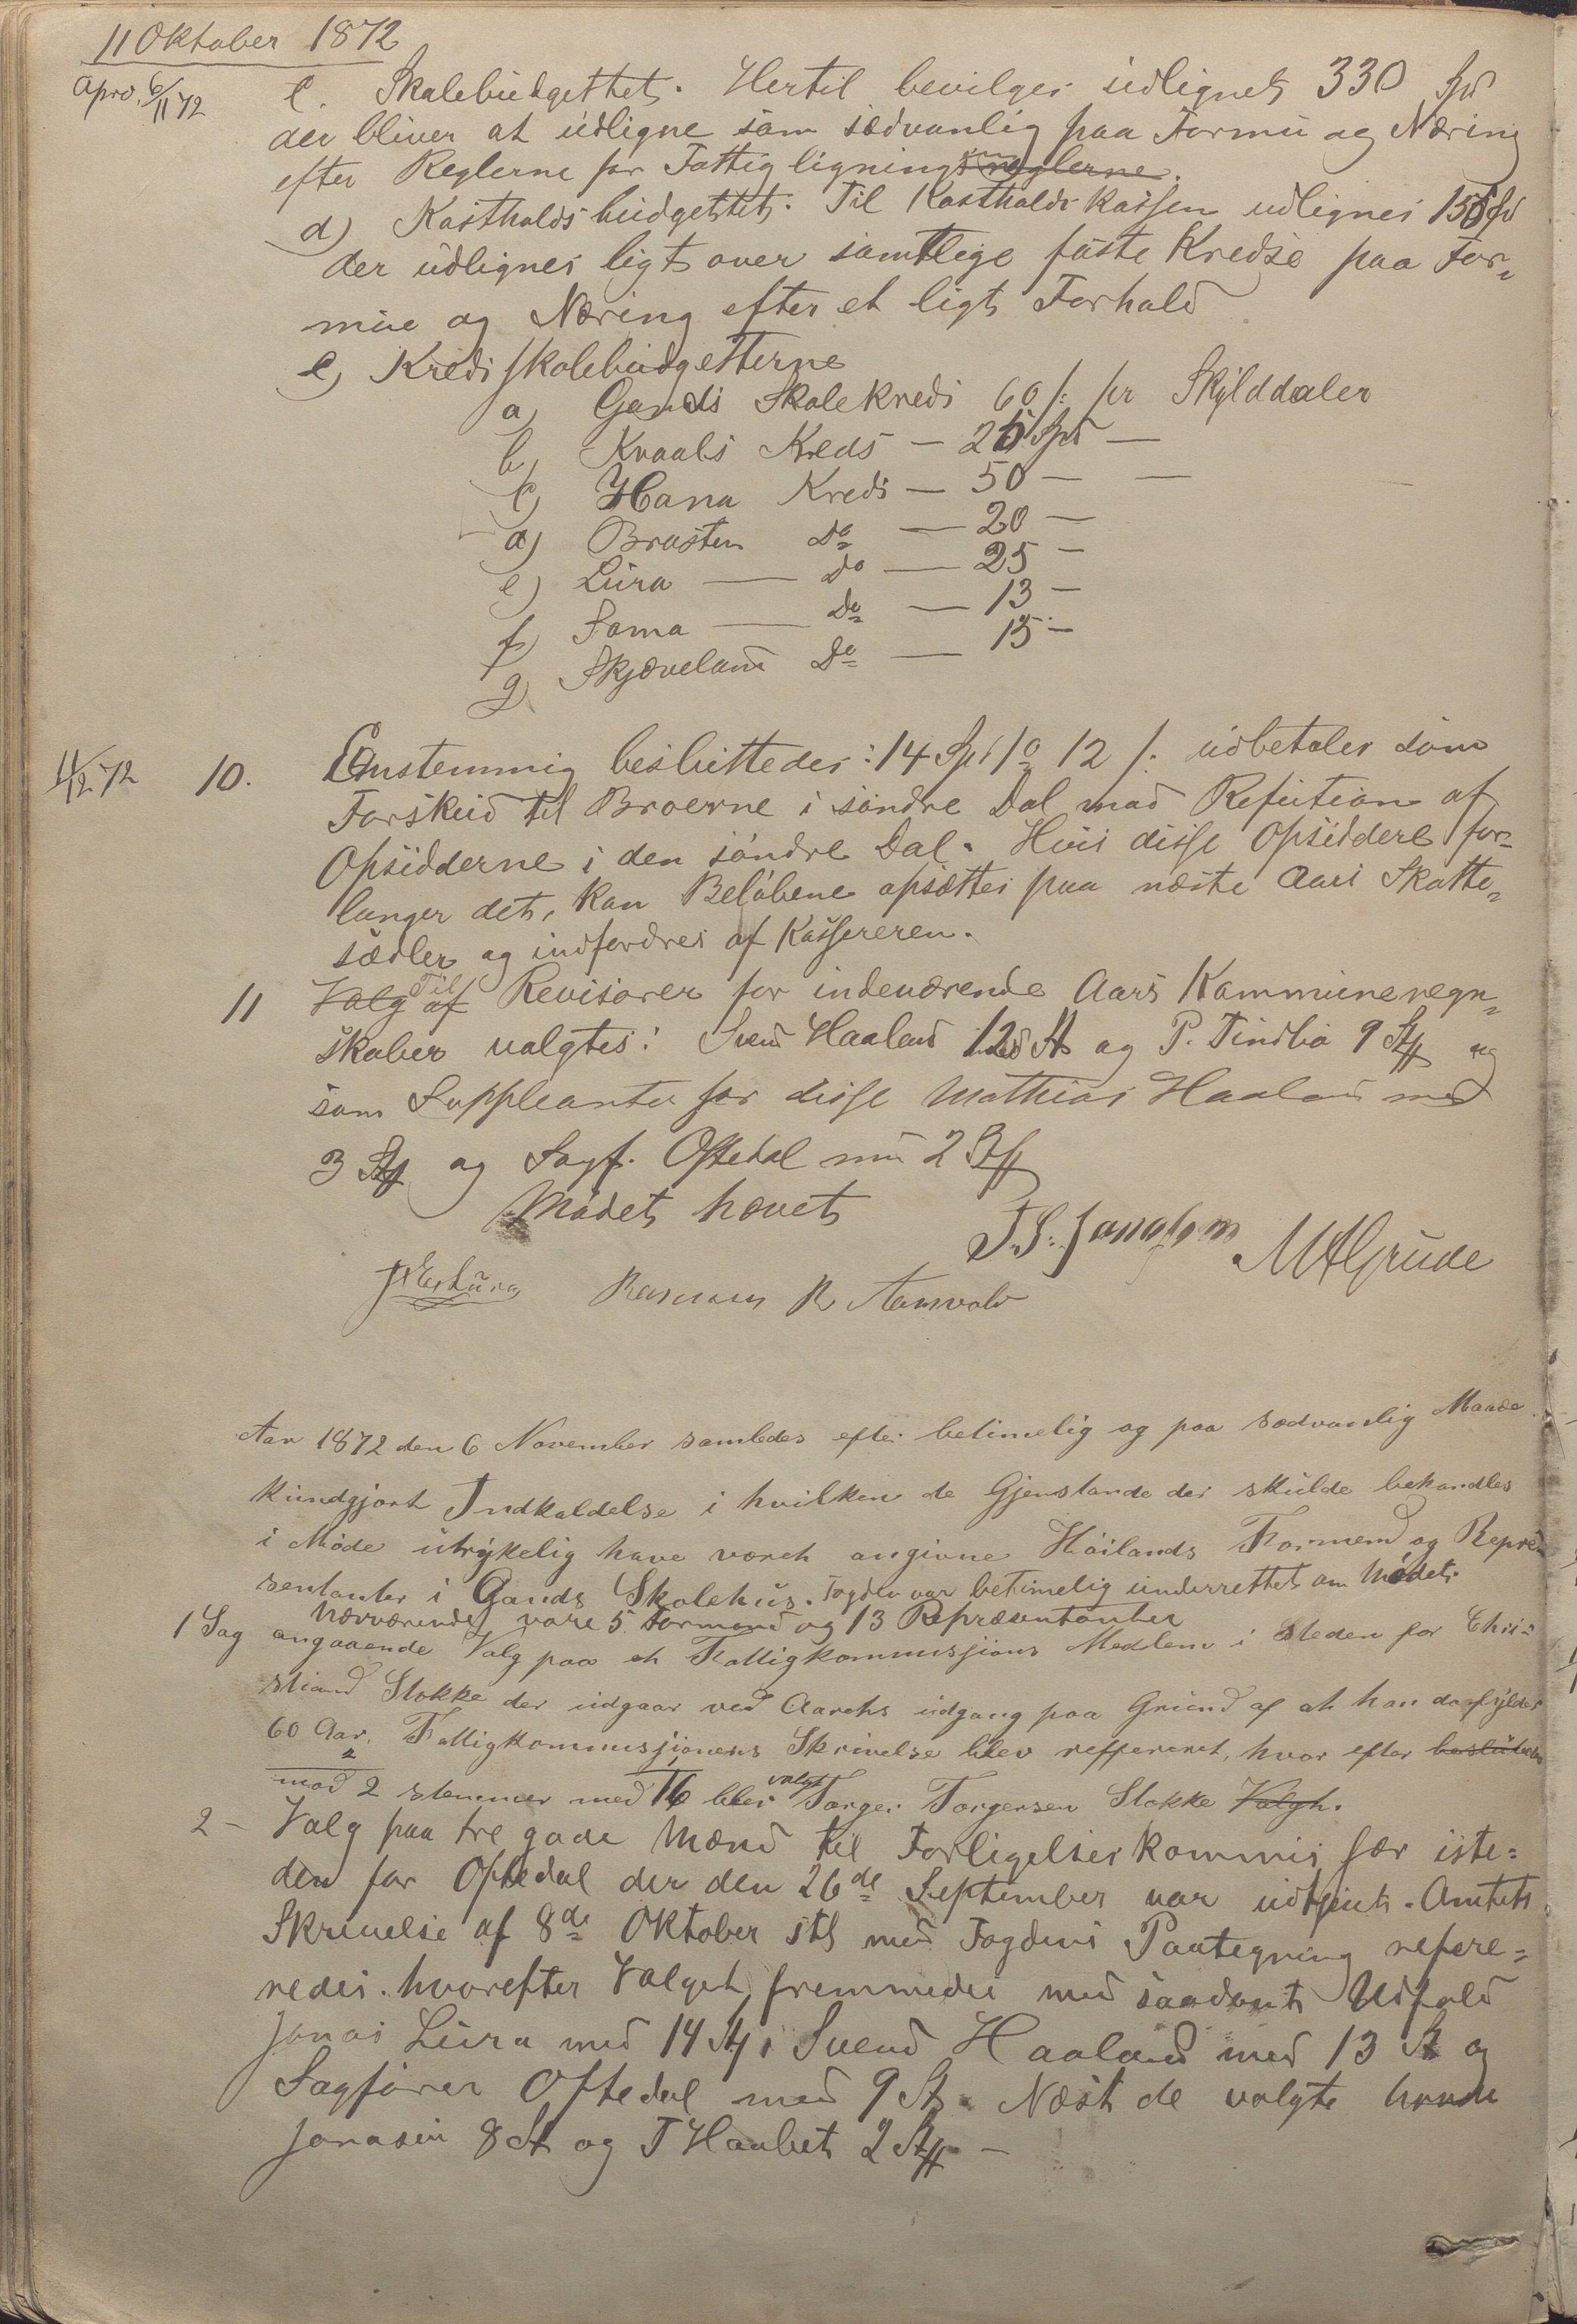 11 Oktober 1872
Aprv. 6/11 72
c. Skolebudgettet. Hertil bevilges udlignet 330 Spd
der bliver at udligne som sædvanlig paa Formu og Næring
efter Reglerne for Fattigligningsreglerne.
d) Kostholdsbudgettet. Til Kostholdskassen udlignes 150 Spd
der udlignes ligt over samtlige faste Kredse paa For-
mue og Næring efter et ligt Forhold
e) Kredsskolebudgetterne
a) Gands Skolekreds 60 s. pr Skylddaler
b) Kvaals Kreds — 26 Spd —
c) Hana Kreds — 50 — —
d) Brasten Do — 20 —
e) Lura — Do — 25 —
f) Soma — Do — 13 —
g) Skjæveland Do — 15 —
11/12 72 10. Enstemmig besluttedes: 14 Spd 1 o 12 s. udbetales som
Forskud til Broerne i søndre Dal mod Refution af
Opsidderne i den søndre Dal. Hvis disse Opsiddere for-
langer det, kan Beløbene opsættes paa næste Aars Skatte-
sedler og indfordres af Kassereren.
11 Valg af Til Revisorer for indeværende Aars Kommuneregn-
skaber valgtes: Svend Haaland 12 St og P. Tindbø 9 St og
som Suppleanter for disse Mathias Haaland med
3 St og Sagf. Oftedal med 2 St
Mødet hævet
T. S. Jonassen M A Grude
Rasmus R Aamvold
Aar 1872 den 6 November samledes efter betimelig og paa sædvanlig Maade
kundgjort Indkaldelse i hvilken de Gjenstande der skulde behandles
i Møde utrykelig have været angivne Høilands Formend og Repræ-
sentanter i Gands Skolehus. Fogden var betimelig underrettet om Mødet.
Nærværende vare 5 Formænd og 13 Repræsentanter
1 Sag angaaende Valg paa et Fattigkommissions Medlem i Steden for Chri-
stiand Stokke der udgaar ved Aarets udgang paa Grund af at han da fylder
60 Aar. Fattigkommissjonens Skrivelse blev refereret, hvor efter beslutedes
mod 2 stemmer med 16 blev valgt Torger Torgersen Stokke Valgt.
2 - Valg paa tre gode Mænd til Forligelseskommissær iste-
den for Oftedal der den 26de September var udtjent. Amtets
Skrivelse af 8de Oktober stl med Fogdens Paategning refere-
redes. hvorefter Valget fremmedes med saadant Udfald
Jonas Lura med 14 St, Svend Haaland med 13 St og
Sagfører Oftedal med 9 St. Næst de valgte havde
Jonasen 8 St og T Haabet 2 St —